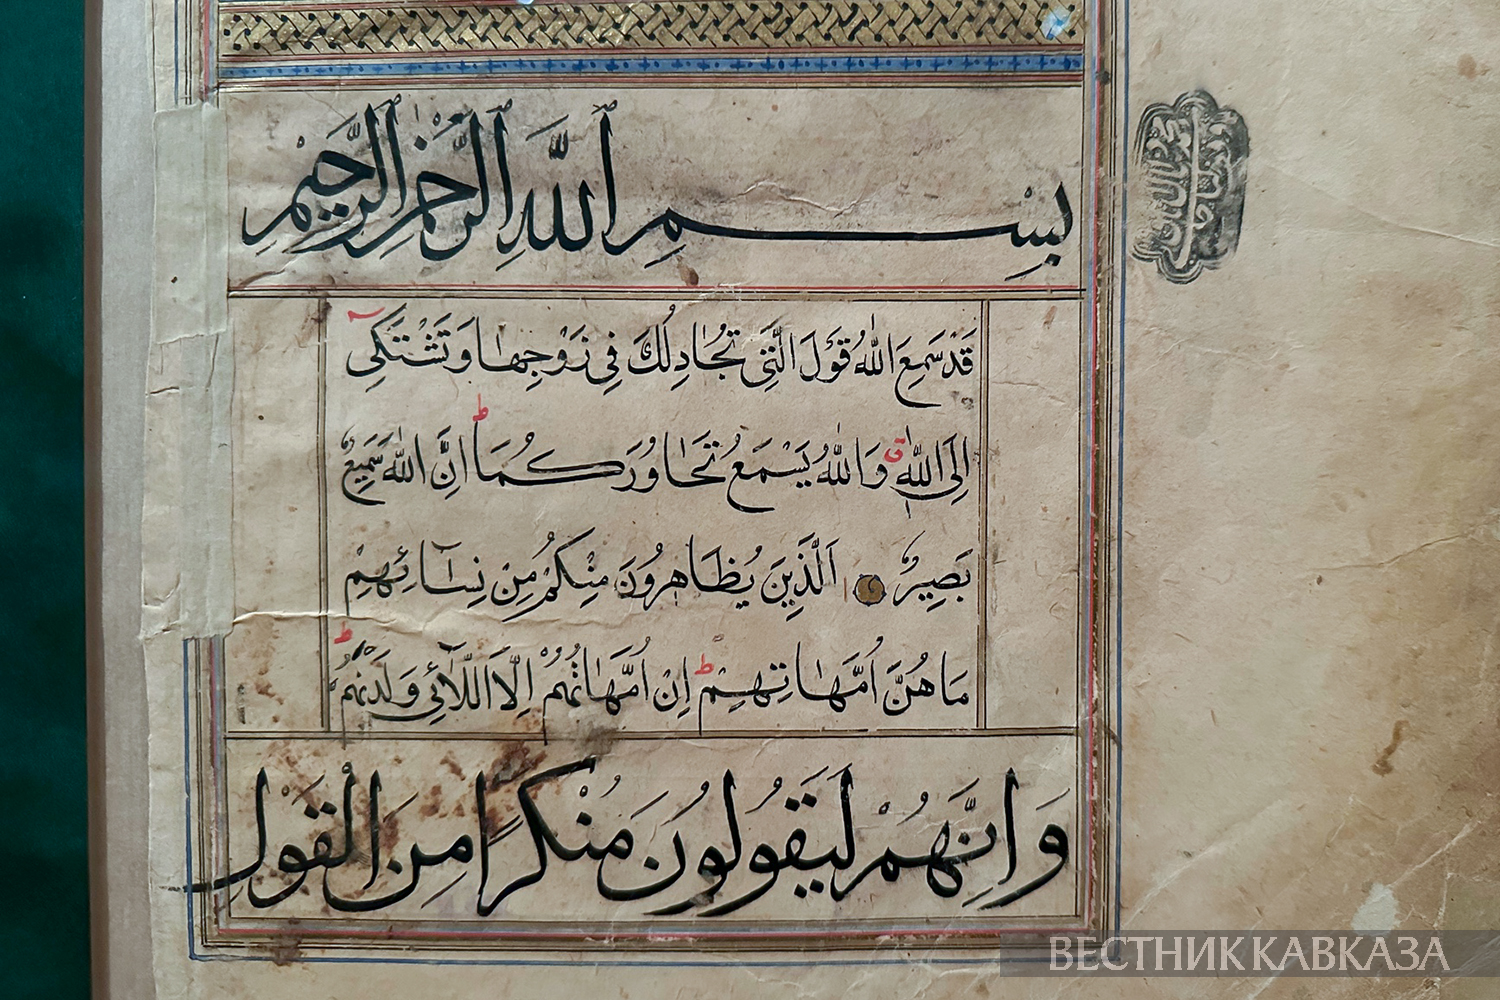 بِسْمِ ٱللَّهِ ٱلرَّحْمٰنِ ٱلرَّحِيمِ
قَدْ سَمِعَ اللّٰهُ قَوْلَ الَّتِى تُجَادِلُكَ فِى زَوْجِهَا وَتَشْتَكِى
اِلَى اللّٰهِ ق وَاللّٰهُ يَسْمَعُ تَحَاوُرَكُمَا ط اِنَّ اللّٰهَ سَمِيعٌ
بَصِيرٌ اَلَّذِينَ يُظَاهِرُونَ مِنْكُمْ مِنْ نِسَآئِهِمْ
مَا هُنَّ اُمَّهَاتِهِمْ ط اِنْ اُمَّهَاتُهُمْ اِلَّا اللَّآئِى وَلَدْنَهُمْ ط
وَاِنَّهُمْ لَيَقُولُونَ مُنْكَرًا مِنَ الْقَوْلِ
ВЕСТНИК КАВКАЗА